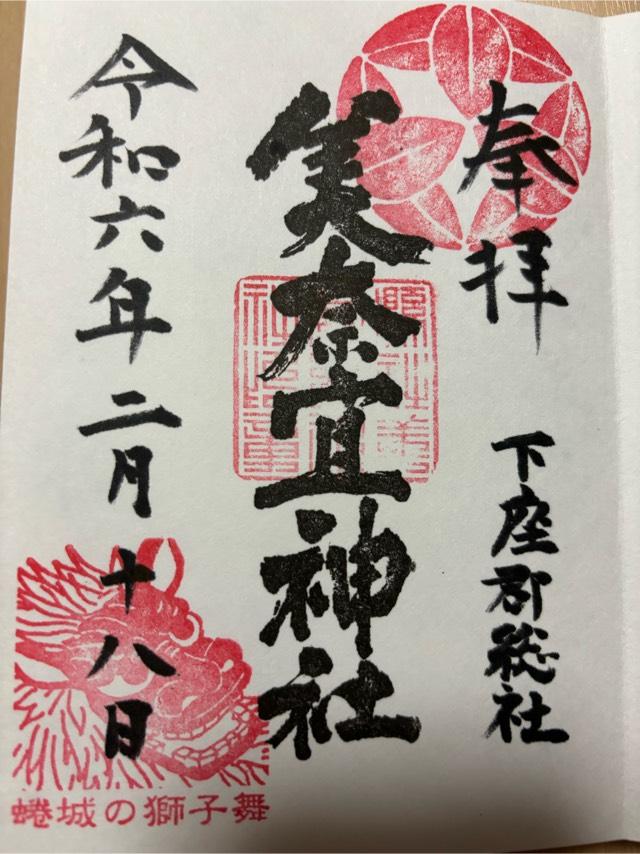 奉拝
下座郡総社
美奈宜神社
令和六年二月十八日
蜷城の獅子舞